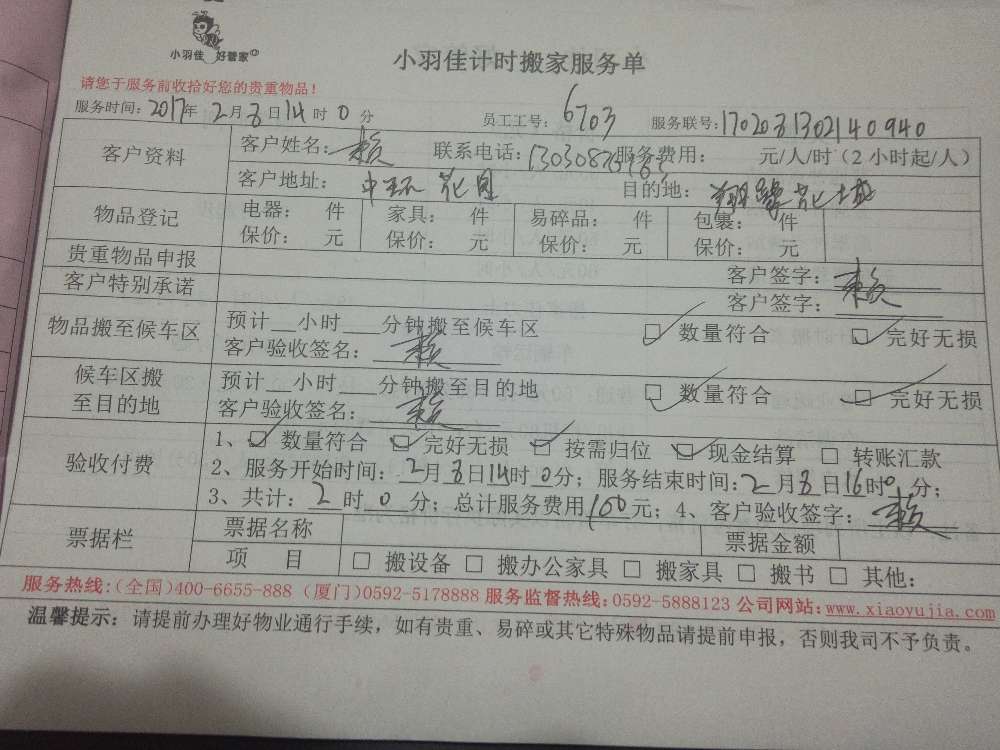 小羽佳 好管家
小羽佳计时搬家服务单
请您于服务前收拾好您的贵重物品！
服务时间：2017年2月8日14时0分 员工工号：6703 服务联号：1702081302140940
客户资料 客户姓名：赖 联系电话： 服务费用： 元/人/时（2小时起/人）
客户地址：中环花园 目的地：翔鹭花城
物品登记 电器： 件 家具： 件 易碎品： 件 包裹： 件
保价： 元 保价： 元 保价： 元 保价： 元
贵重物品申报 客户签字：赖
客户特别承诺 客户签字：赖
物品搬至候车区 预计__小时___分钟搬至候车区 ☑ 数量符合 ☑ 完好无损
客户验收签名：赖
候车区搬至目的地 预计__小时___分钟搬至目的地 ☑ 数量符合 ☑ 完好无损
客户验收签名：赖
验收付费 1、☑ 数量符合 ☑ 完好无损 ☑ 按需归位 ☑ 现金结算 □ 转账汇款
2、服务开始时间：2月8日14时0分；服务结束时间：2月8日16时0分；
3、共计：2时0分；总计服务费用160元；4、客户验收签字：赖
票据栏 票据名称 票据金额
项 目 □ 搬设备 □ 搬办公家具 □ 搬家具 □ 搬书 □ 其他：
服务热线：（全国）400-6655-888（厦门）0592-5178888 服务监督热线：0592-5888123 公司网站：www.xiaoyujia.com
温馨提示：请提前办理好物业通行手续，如有贵重、易碎或其它特殊物品请提前申报，否则我司不予负责。